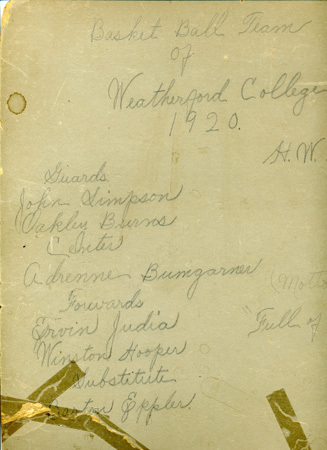 Basket Ball Team
of
Weatherford College
1920.
H.W.
Guards
John Simpson
Oakley Burns
Center
Adrenne Bumgarner (Motto
Forwards
Ervin Judia "Full of
Winston Hooper
Substitute
Eppler.